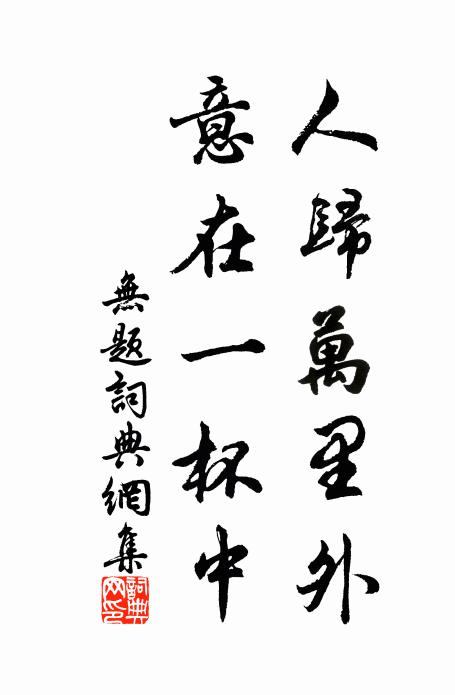 人歸萬里外
意在一杯中
無題詞典網集
詞典網印